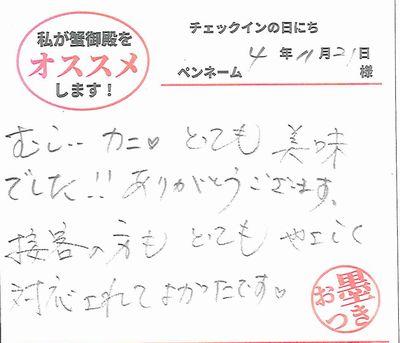 私が蟹御殿を
オススメ
します！
チェックインの日にち
4年11月21日
ペンネーム 様
むしカニ♡ とても 美味
でした!! ありがとうございます。
接客の方も とても やさしく
対応されてよかったです♡
お墨つき